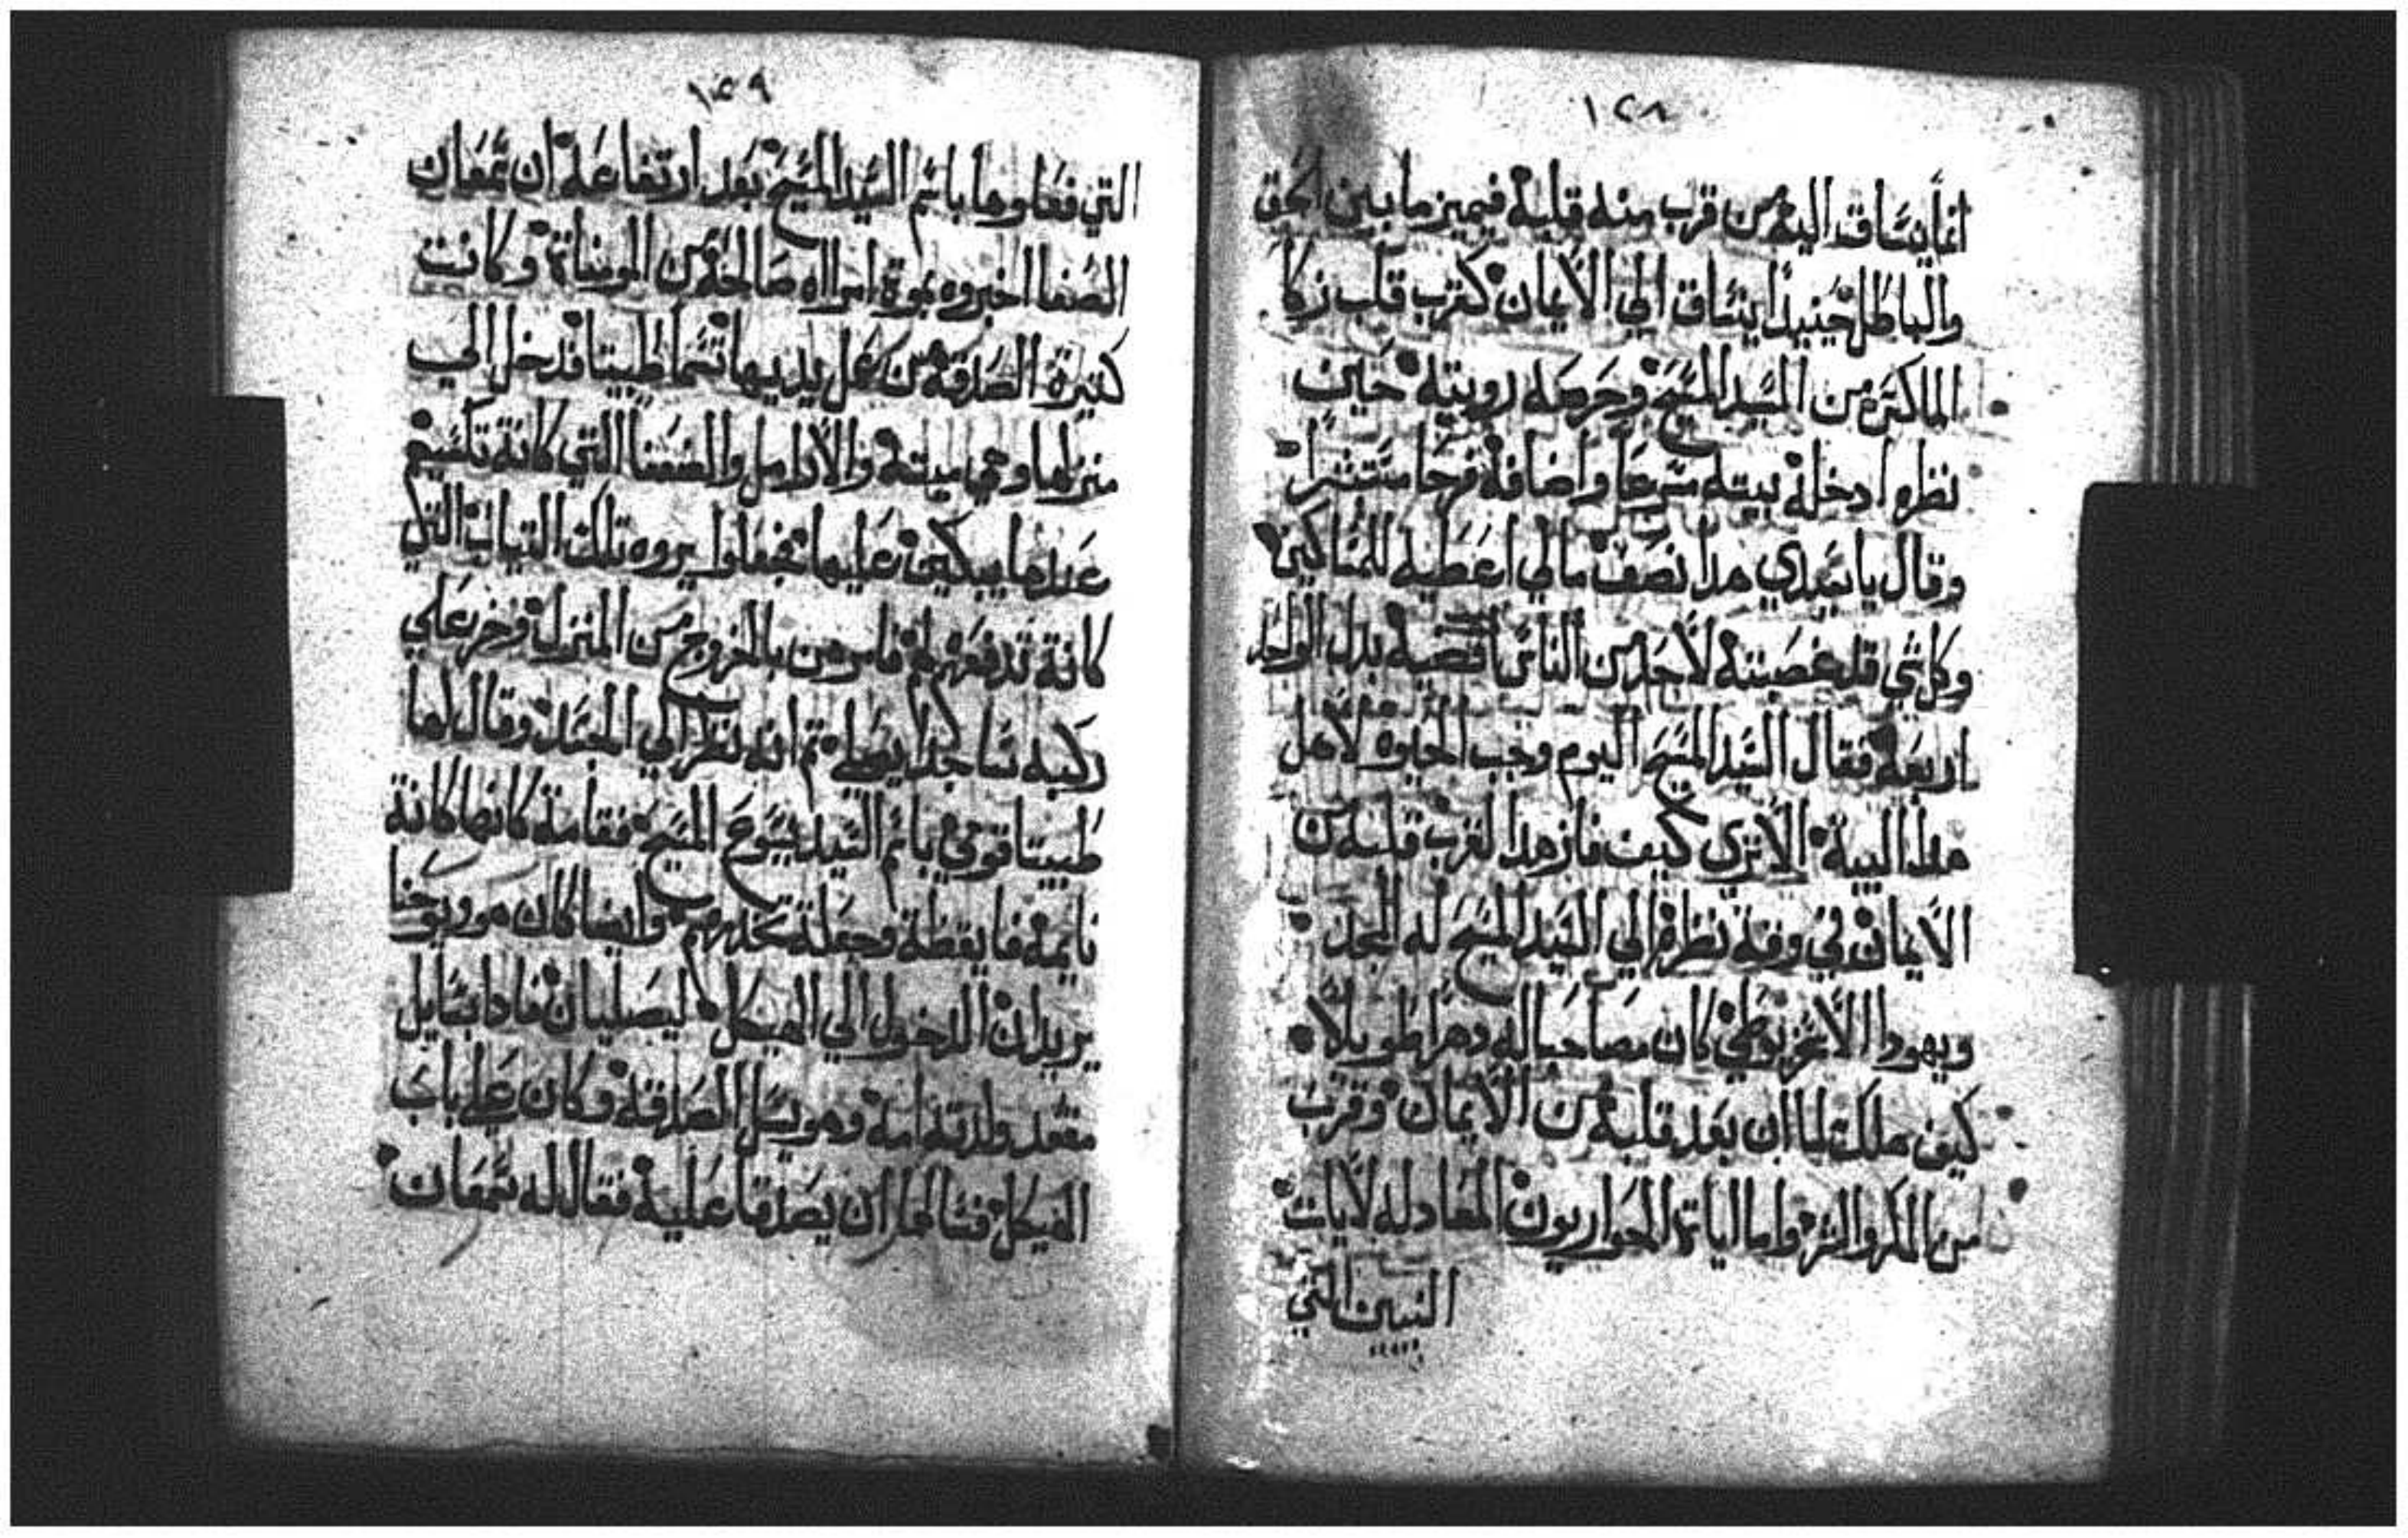 ١٢٨
انما ينساق اليه من قرب منه قلبه فيميز ما بين الحق
والباطل حينيذا ينساق الي الايمان كقرب قلب زكا
الماكس من السيد المسيح وحرصه رويته حين
نظره ادخله بيته مسرعا واضافه فرحا مستبشرا
وقال يا سيدي هدا نصف مالي اعطيه للمساكين
وكل شي قد غصبته لاحد من الناس اقضيه بدل الواحد
اربعه فقال السيد المسيح اليوم وجب الحياوه لاهل
هدا البية الا تري كيف فاز هدا لقرب قلبه من
الايمان في وقة نظره الي السيد المسيح له المجد
ويهودا الاسخريوطي كان مصاحبا له دهرا طويلا
كيف هلك لما ان بعد قلبه من الايمان وقرب
من المكر والشر واما اياة الحواريون المعادله لايات
النبيين التي
١٢٩
التي فعلوها باسم السيد المسيح بعد ارتفاعه ان سمعان
الصفا اخبروه بموة امراه صالحه من المومناة وكانت
كتيرة الصدقه من عمل يديها تسما طبيتا فدخل الي
منزلها وهي ميته والارامل والضعفا التي كانة تكسيهم
عندها يبكين عليها فجعلوا يروه تلك التياب التي
كانة تدفعهم لهم فامرهن بالخروج من المنزل وخر علي
ركبه ساجدا يصلي تم انه نظر الي الجسد وقال لها
طبيتا قومي باسم السيد يسوع المسيح فقامة كانها كانة
نايمه فايقظة وجعلة تخدمهم وايضا كان هو ويوحنا
يريدان الدخول الي الهيكل ليصليان فادا بسايل
مقعد ولدته امه وهو يسل الصدقه وكان علي باب
الهيكل فسالهما ان يصدقا عليه فقال له سمعان